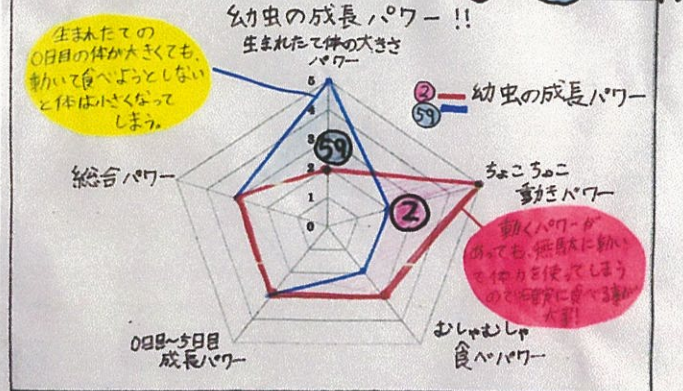 幼虫の成長パワー!!
生まれたての
0日目の体が大きくても、
動いて食べようとしない
と体は小さくなって
しまう。
生まれたて体の大きさ
パワー
5
4
3
2
1
0
59
2
② 幼虫の成長パワー
59
総合パワー
ちょこちょこ
動きパワー
動くパワーが
あっても、無駄に動い
て体力を使ってしまう
ので確実に食べる事が
大事!
0日目〜5日目
成長パワー
むしゃむしゃ
食べパワー